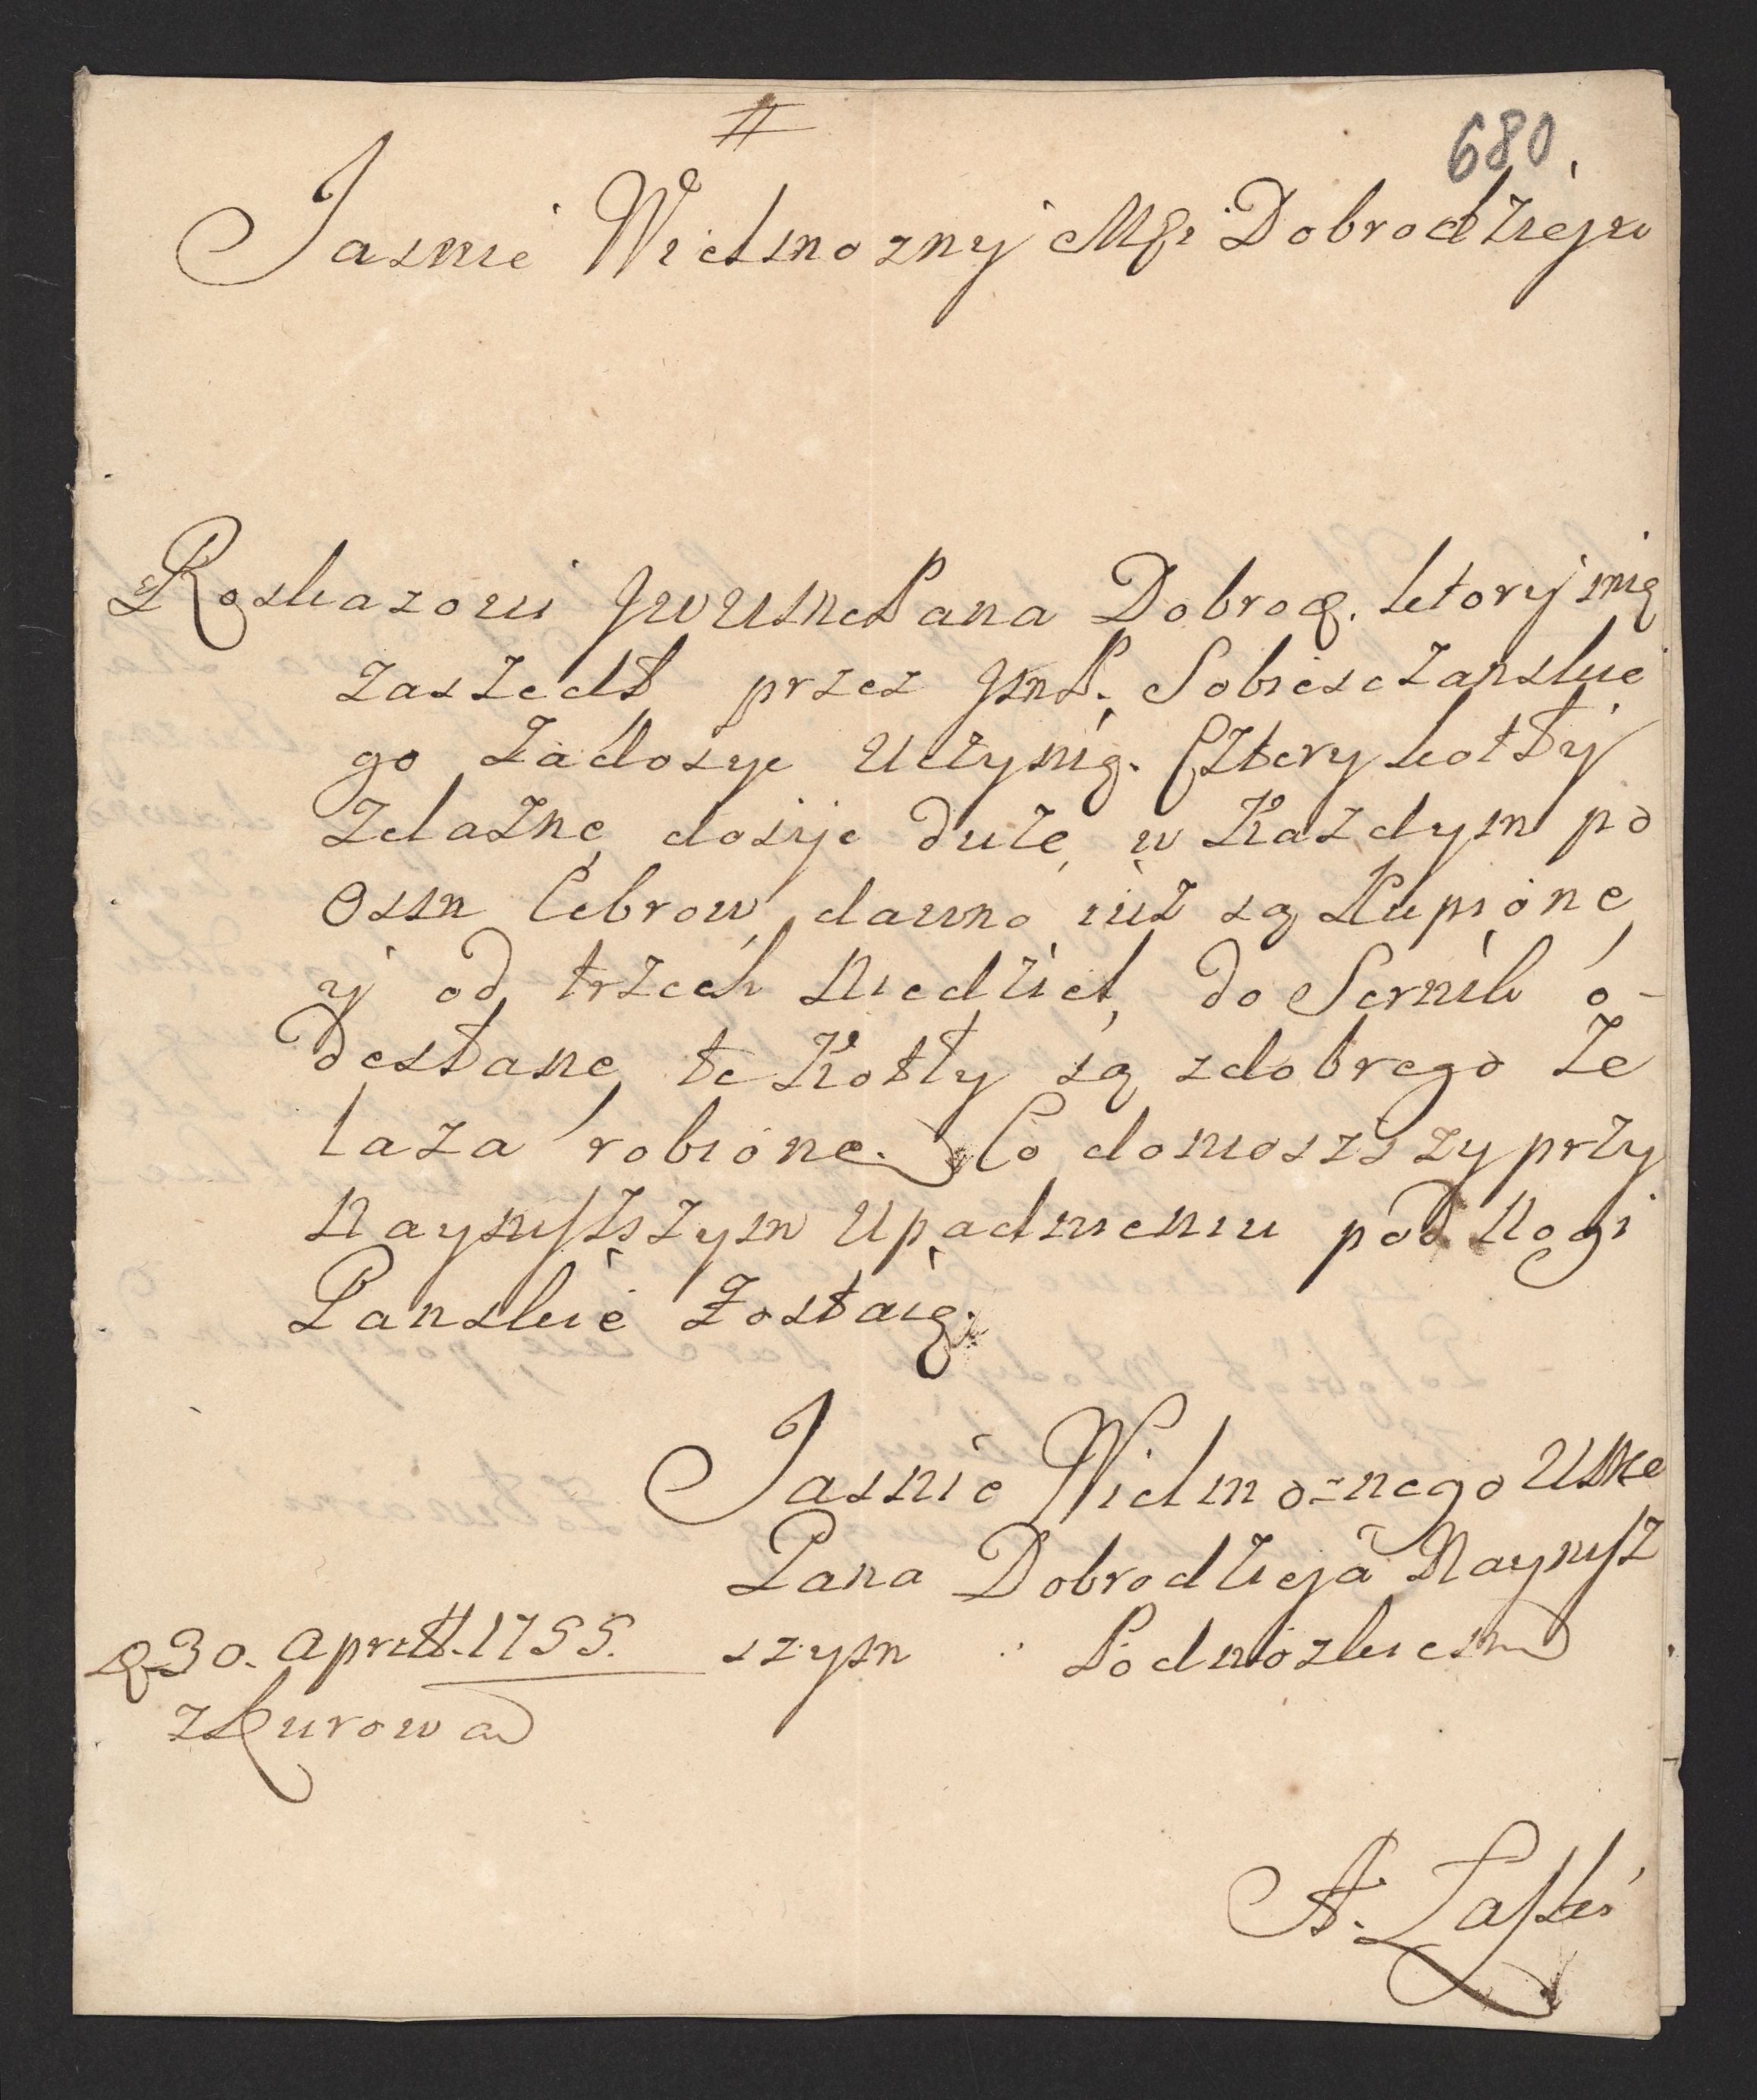 680.
Jasnie Wielmozny Mći Dobrodzieju
Roskazowi JWWMCPana Dobrod. ktory mię
zaszedł przez JmP. Sobiesczanskie
go zadosyc uczynię. Cztery kotły
zelazne dosyc duze, w Kazdym po
Osm Cebrow, dawno iuz są Kupione
y od trzech Niedziel, do Sernik o-
desłane, te Kotły są zdobrego ze
laza robione. Co doniosszszy przy
Nayniszszym Upadnieniu pod Nogi
Panskie Zostaię.
Jasnie Wielmoznego
Pana Dobrodzieja Naynisz
szym Podnozkiem
D 30. Aprill. 1755.
z Kurowa
A. Łaski